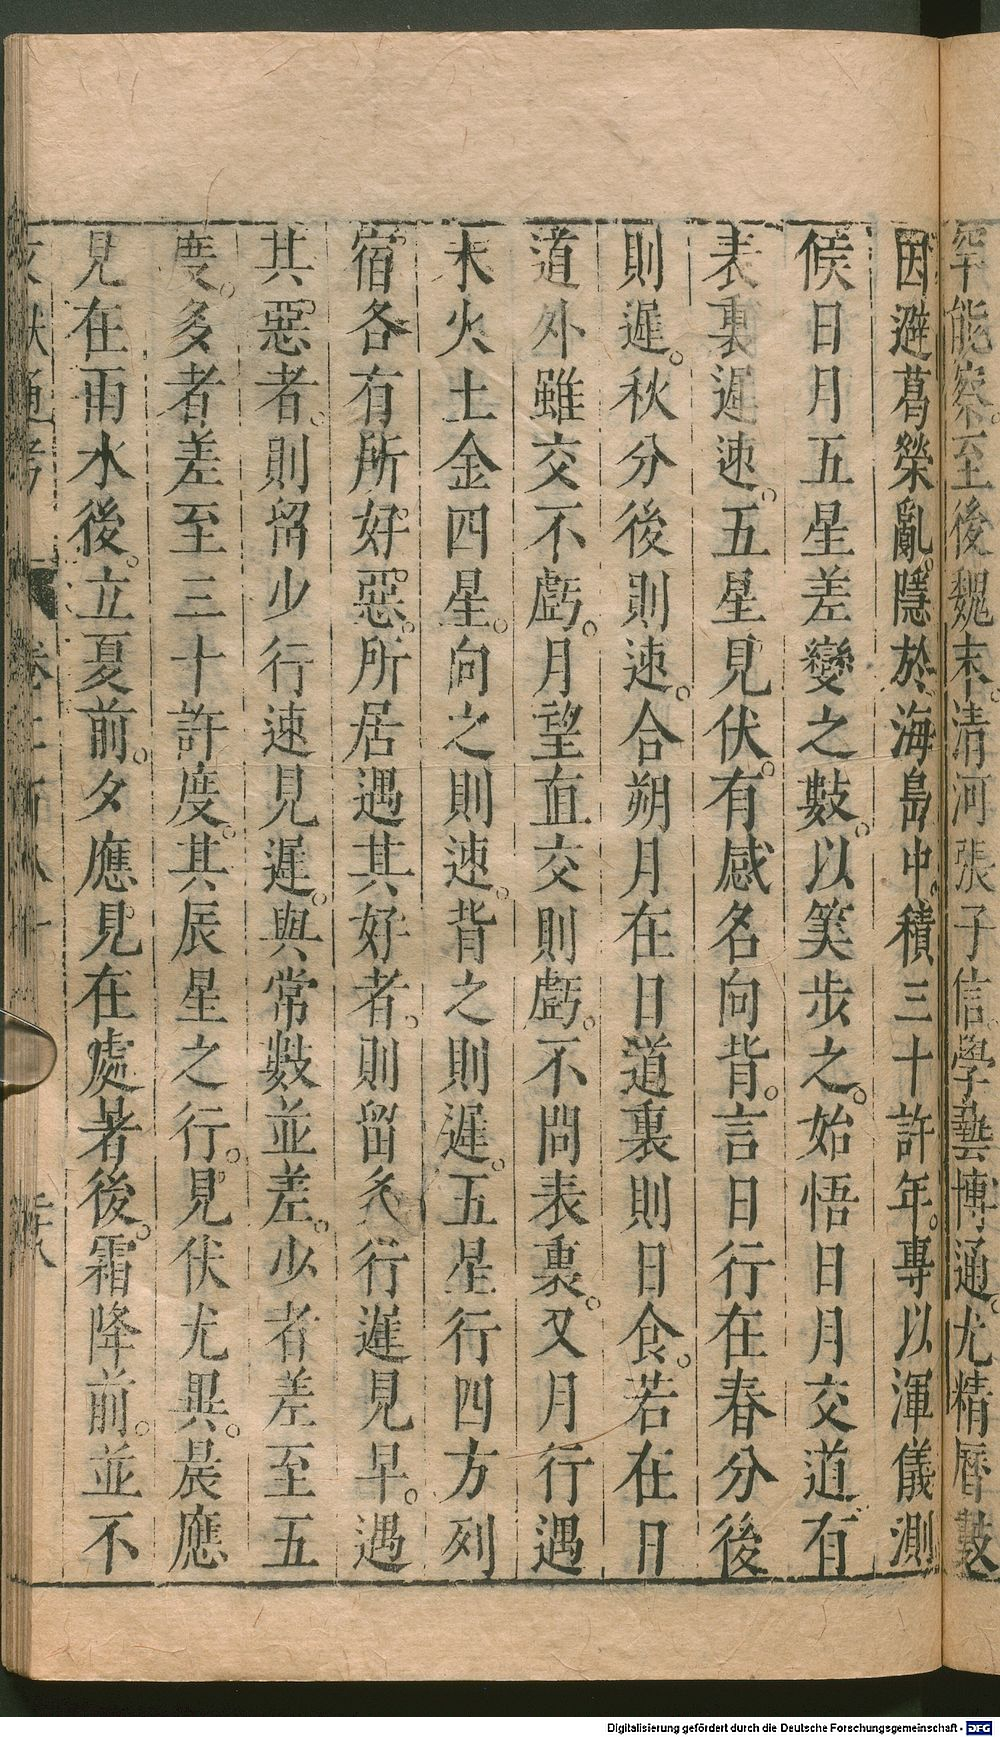 罕能察至後魏末清河張子信學藝博通尤精曆數
因避葛榮亂隱於海島中積三十許年專以渾儀測
候日月五星差變之數以筭步之始悟日月交道有
表裏遲速五星見伏有感名向背言日行在春分後
則遲秋分後則速合朔月在日道裏則日食若在日
道外雖交不虧月望值交則虧不問表裏又月行遇
木火土金四星向之則速背之則遲五星行四方列
宿各有所好惡所居遇其好者則留多行遲見早遇
其惡者則留少行速見遲與常數並差少者差至五
度多者差至三十許度其辰星之行見伏尤異晨應
見在雨水後立夏前夕應見在處暑後霜降前並不
文獻通考
Digitalisierung gefördert durch die Deutsche Forschungsgemeinschaft - DFG